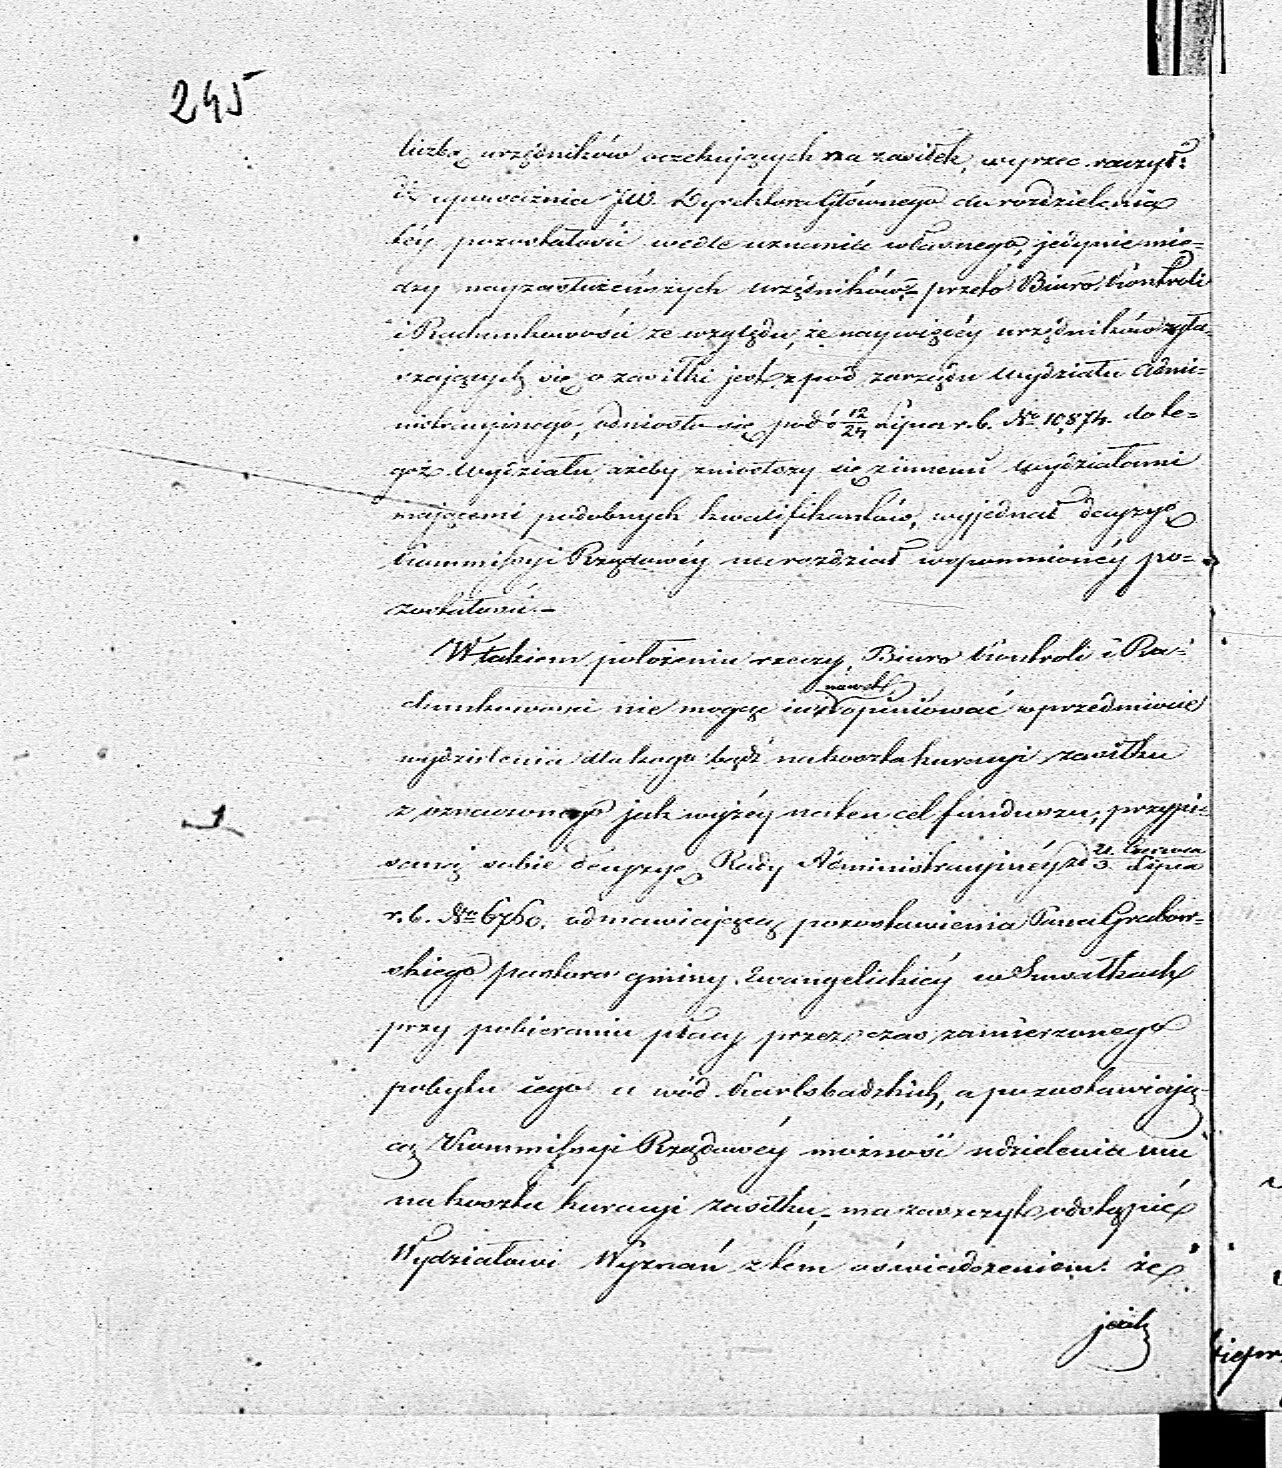 245
liczbę urzędników oczekujących na zasiłek, wyrzec raczył:
że upoważnia JW. Dyrektora Głównego do rozdzielenia
téy pozostałości wedle uznania własnego, jedynie mię-
dzy nayzasłużeńszych urzędników,- przeto Biuro Kontroli
i Rachunkowości ze względu, że naywięcéy urzędników zgła-
szających się o zasiłki jest z pod zarządu Wydziału Admi-
nistracyinego, odniosło się pod d 12/24 Lipca r.b. No 10,874. do te-
goż Wydziału, ażeby zniósłszy się z innemi Wydziałami
mającemi podobnych kwalifikantów, wyjednał decyzyę
Kommissyi Rządowéy na rozdział wspomnionéy po-
zostałości.-
W takiem położeniu rzeczy, Biuro Kontroli i Ra-
chunkowości nie mogąc nawet opiniować w przedmiocie
wydzielenia dla kogo bądź na koszta kuracyi zasiłku
z oznaczonego jak wyżéy na ten cel funduszu, przypi-
saną sobie decyzyę Rady Administracyinéy z d 21 Czerwca/3 Lipca
r.b. No 6760. odmawiającą pozostawienia Pana Grabow-
skiego pastora gminy Ewangelickiéy w Suwałkach
przy pobieraniu płacy przez czas zamierzonego
pobytu iego u wód Karlsbadzkich, a pozostawiają-
cą Kommissyi Rządowéy możność udzielenia mu
na koszta kuracyi zasiłku,- ma zaszczyt odstąpić
Wydziałowi Wyznań z tém oświadczeniem: że